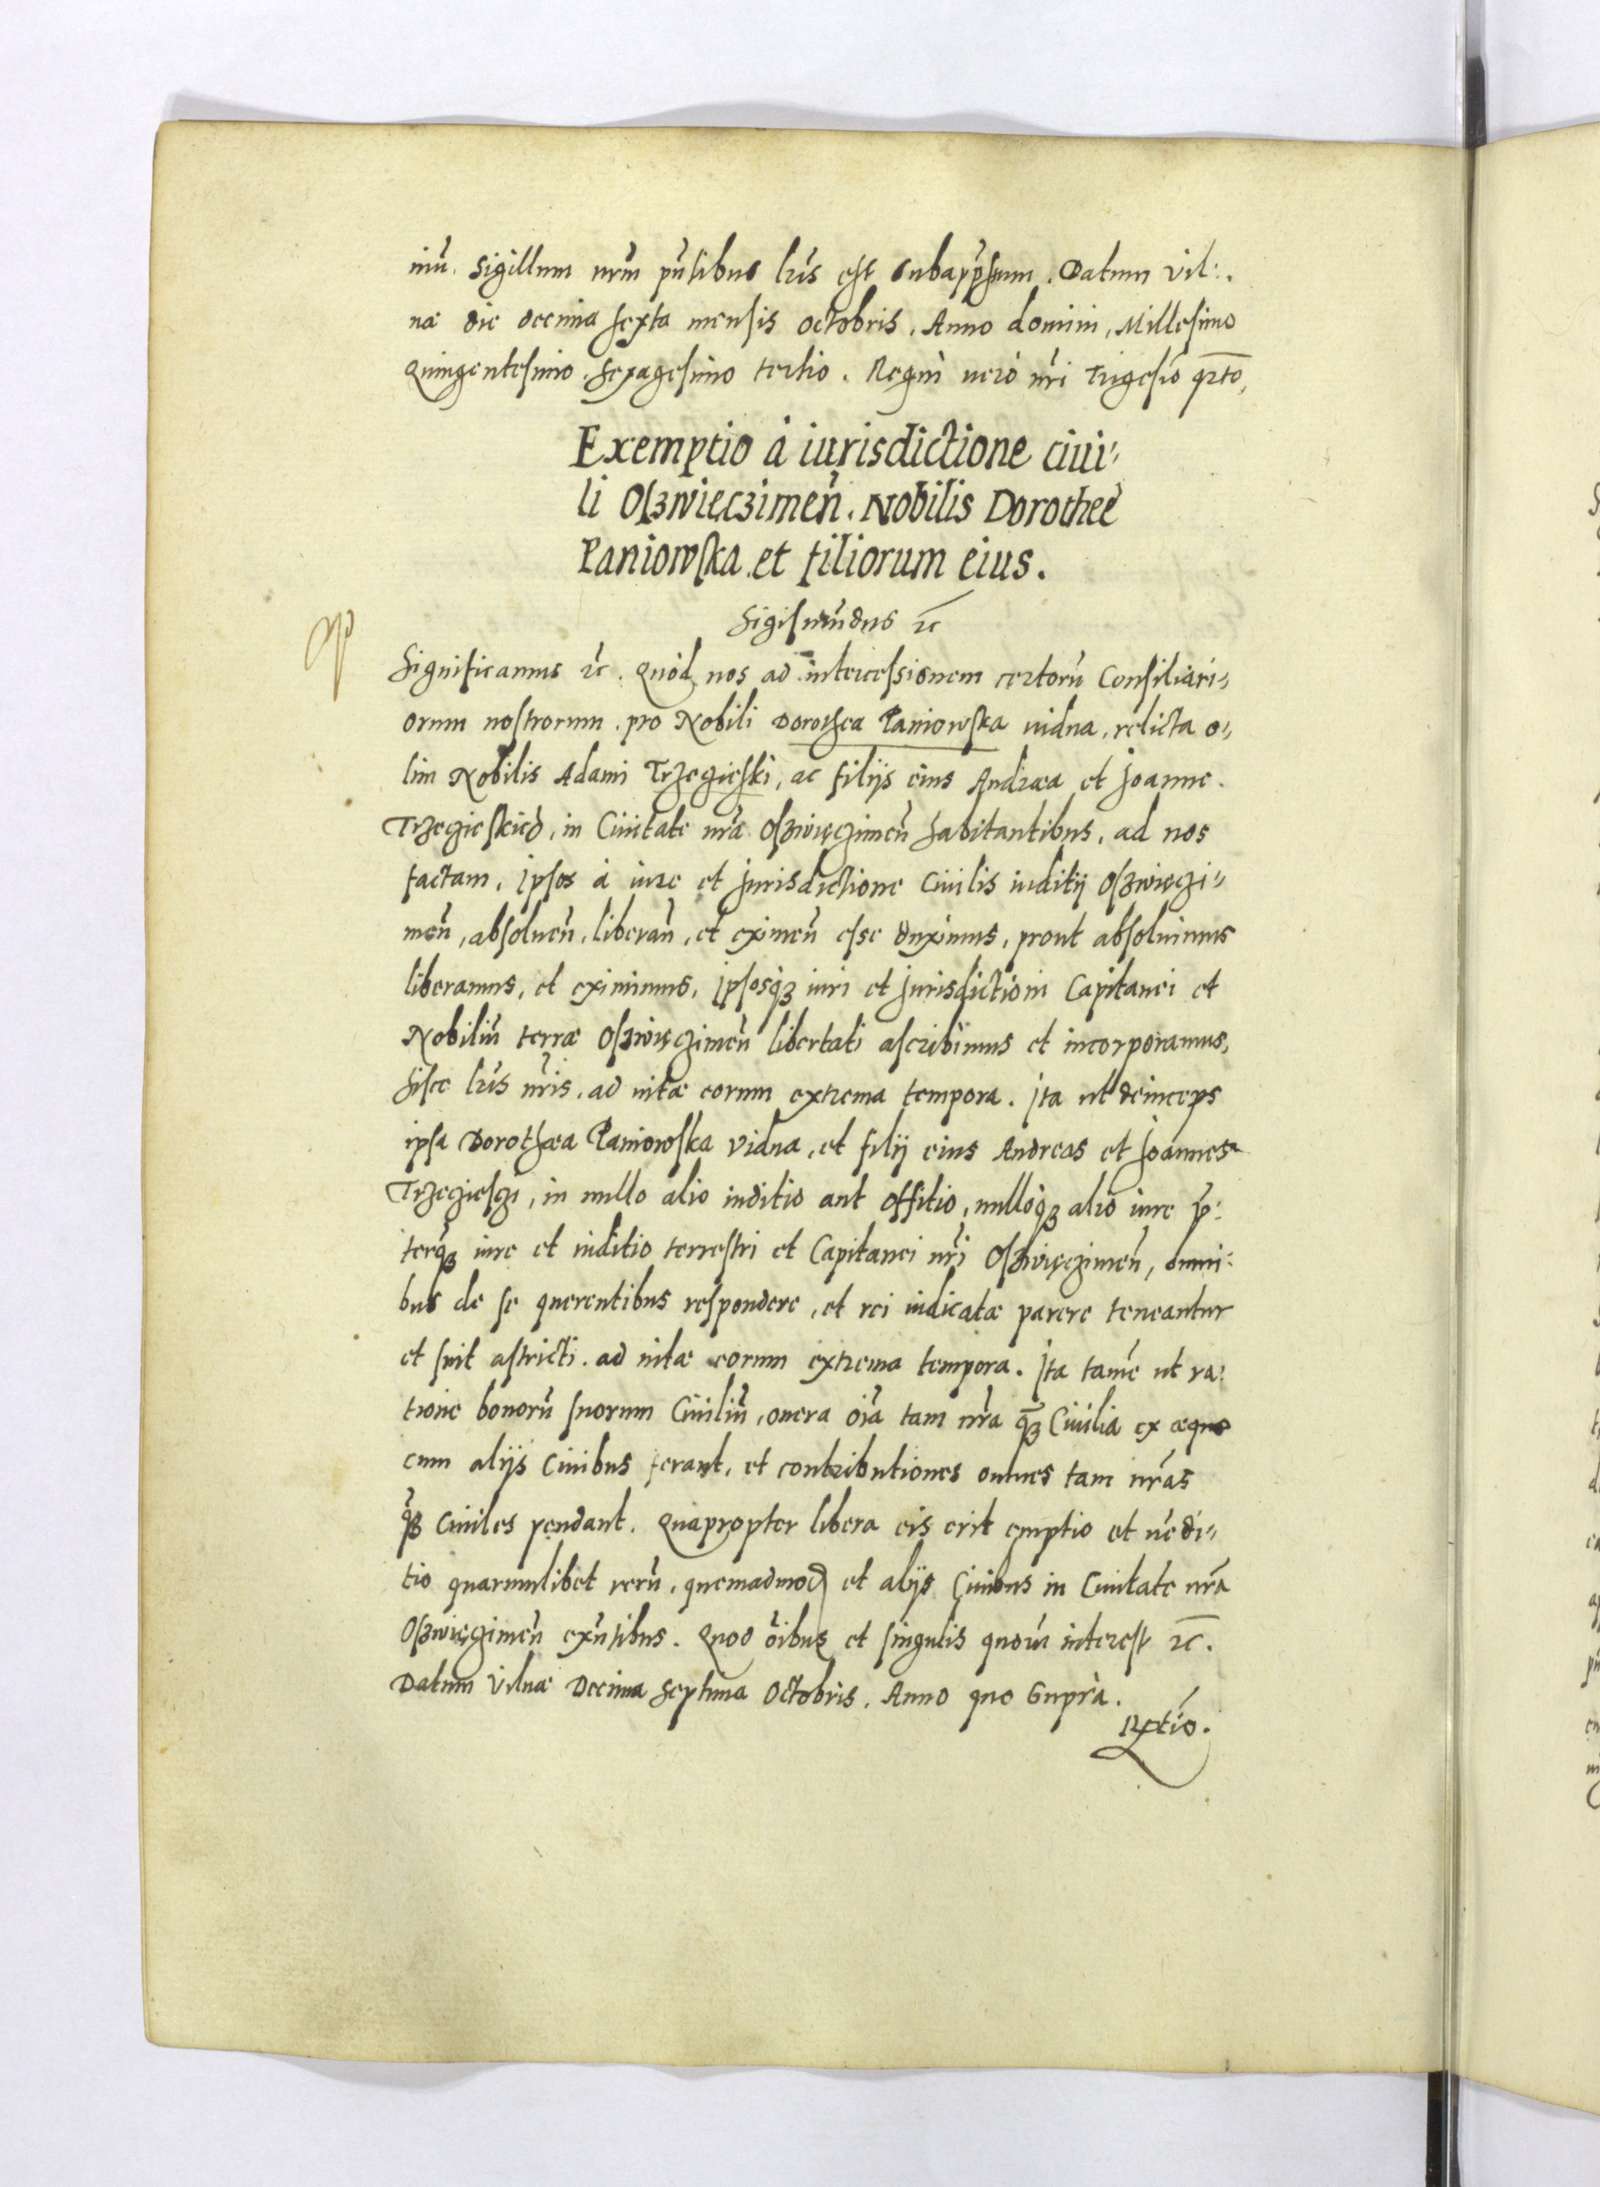 niũ. Sigillum nr̃m pñtibus lr̃is est subappẽsum. Datum Vil:
næ die decima sexta mensis octobris, Anno domini, Millesimo
Quingentesimo. Sexagesimo tertio. Regni uero nr̃i Trigesĩo qr̃to,
Exemptio à iurisdictione ciui,
li Oszwięczimeñ. Nobilis Dorotheę
Paniowska et filiorum eius.
Sigismũdus ꝛc
Significamus ꝛc. Quòd nos ad intercessionem certorũ Consiliari,,
orum nostrorum. pro Nobili Dorothea Paniowska uidua, relicta o,,
lim Nobilis Adami Trzecieski, ac filijs eius Andræa et Joanne.
Trzecieskied, in Ciuitate nr̃a Oszwięczimeñ habitantibus, ad nos
factam, Ipsos à iure et Jurisdictione Ciuilis iuditij Oszwięczi,,
meñ, absolueñ, liberañ, et eximeñ esse duximus, prout absoluimus
liberamus, et eximimus, Ipsosqʒ iuri et Jurisdictioni Capitanei et
Nobiliũ terræ Oszwięczimeñ libertati ascribimus et incorporamus,
hisce lr̃is nr̃is. ad uitæ eorum extrema tempora. Ita ut deinceps
ipsa Dorothæa Paniowska Vidua, et filij eius Andreas et Joannes
Trzecieszi, in nullo alio iuditio aut offitio, nulloqʒ alio iure p̃:
terqʒ iure et iuditio terrestri et Capitanei nr̃i Oszwięczimeñ, omni:
bus de se querentibus respondere, et rei iudicatæ parere teneantur
et sint astricti. ad uitæ eorum extrema tempora. Ita tamẽ ut ra:
tione bonorũ suorum Ciuiliũ, onera õia tam nr̃a q̃ʒ Ciuilia ex æquo
cum alijs Ciuibus ferant, et contributiones omnes tam nr̃as
q̃ʒ Ciuiles pendant. Quapropter libera eis erit emptio et uẽdi,,
tio quarumlibet rerũ, quemadmod et alijs Ciuibus in Ciuitate nr̃a
Oszwięczimeñ exñtibus. Quod õibus et singulis quorũ interest ꝛc.
Datum Vilnæ Decima Septima Octobris. Anno quo Supra.
Rtio.